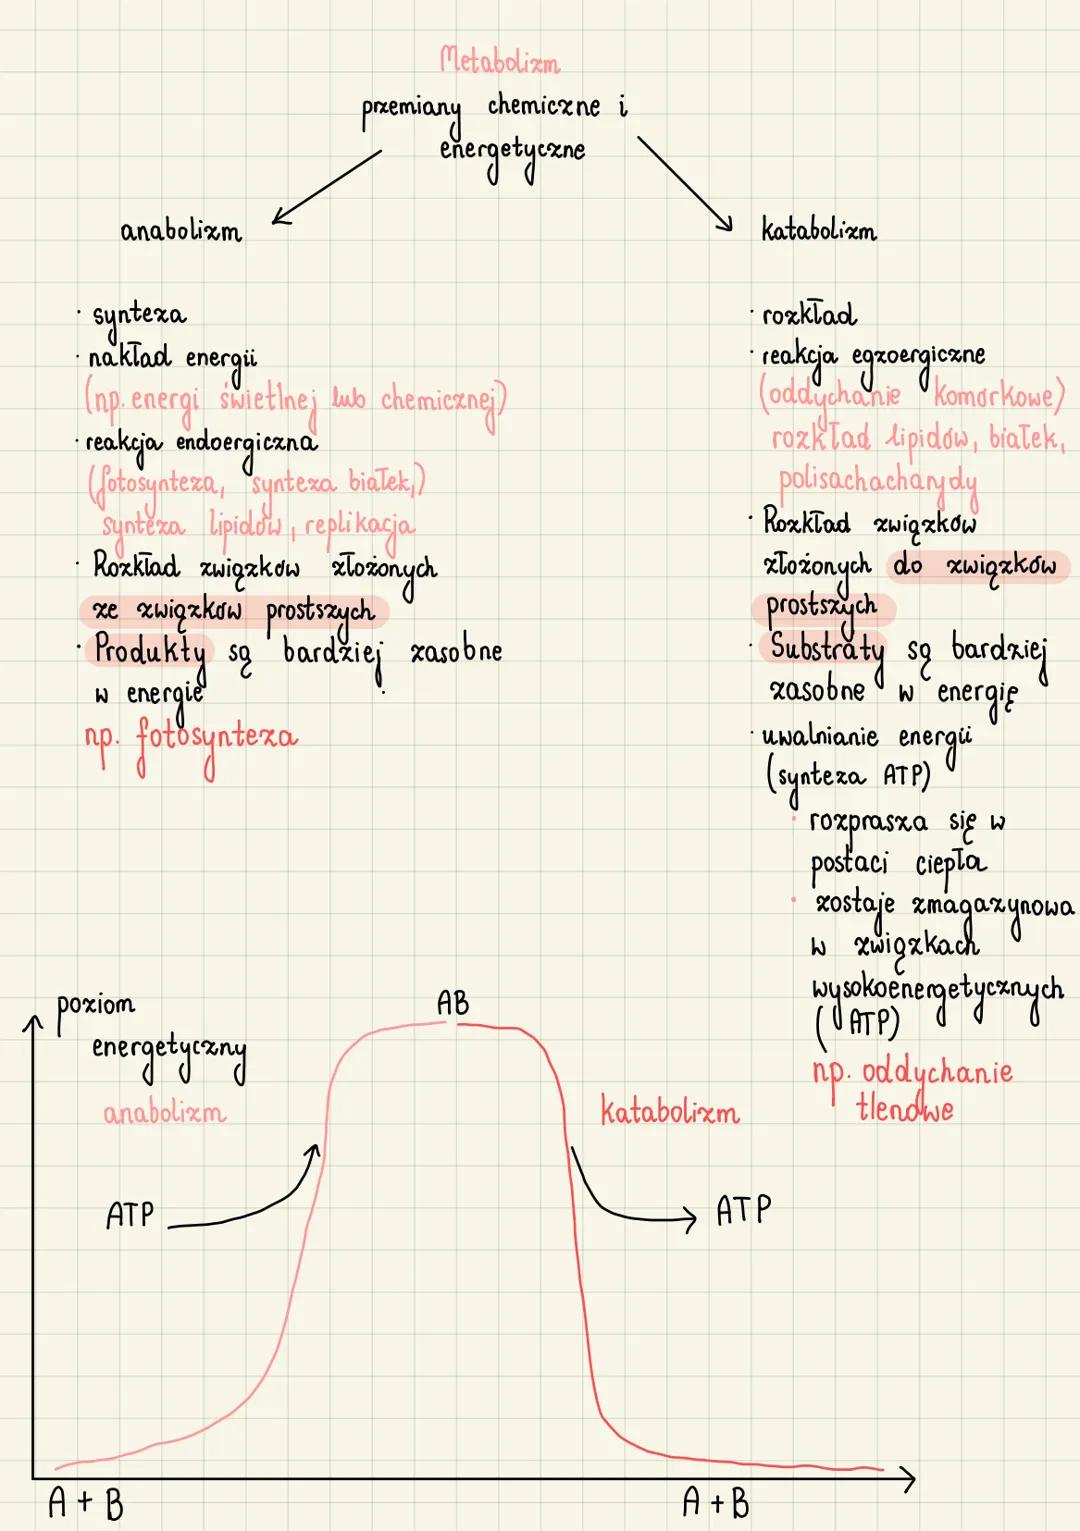 Metabolizm
przemiany chemiczne i
energetyczne
anabolizm
· synteza
· nakład energii
(np. energi świetlnej lub chemicznej)
· reakcja endoergiczna
(fotosynteza, synteza białek,)
synteza lipidów, replikacja
· Rozkład związków złożonych
ze związków prostszych
· Produkty są bardziej zasobne
w energie
np. fotosynteza
katabolizm
· rozkład
· reakcja egzoergiczne
(oddychanie komórkowe)
rozkład lipidów, białek,
polisachacharydy
· Rozkład związków
złożonych do związków
prostszych
· Substraty są bardziej
zasobne w energię
· uwalnianie energii
(synteza ATP)
· rozprasza się w
postaci ciepła
· zostaje zmagazynowa
w związkach
wysokoenergetycznych
(ATP)
np. oddychanie
tlenowe
poziom
energetyczny
AB
anabolizm
katabolizm
ATP
ATP
A + B
A + B